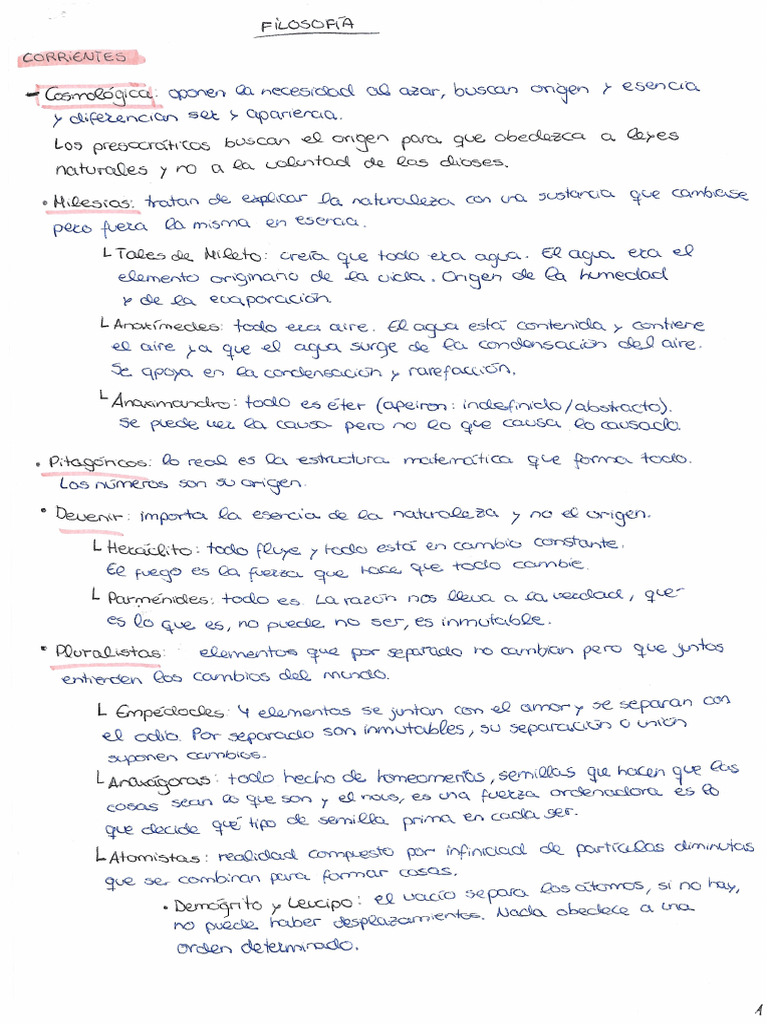 FILOSOFÍA
CORRIENTES
- Cosmológica: oponen la necesidad al azar, buscan origen y esencia
y diferencian ser y apariencia.
Los presocráticos buscan el origen para que obedezca a leyes
naturales y no a la voluntad de los dioses.
• Milesios: tratan de explicar la naturaleza con una sustancia que cambiase
pero fuera la misma en esencia.
└ Tales de Mileto: creía que todo era agua. El agua era el
elemento originario de la vida. Origen de la humedad
y de la evaporación
└ Anaxímedes: todo era aire. El agua está contenida y contiene
el aire ya que el agua surge de la condensación del aire.
Se apoya en la condensación y rarefacción.
└ Anaximandro: todo es éter (apeiron: indefinido/abstracto).
Se puede ver la causa pero no lo que causa lo causado.
• Pitagóricos: lo real es la estructura matemática que forma todo.
Los números son su origen.
• Devenir: importa la esencia de la naturaleza y no el origen.
└ Heráclito: todo fluye y todo está en cambio constante.
El fuego es la fuerza que hace que todo cambie.
└ Parménides: todo es. La razón nos lleva a la verdad, que
es lo que es, no puede no ser, es inmutable.
• Pluralistas: elementos que por separado no cambian pero que juntos
entienden los cambios del mundo.
└ Empédocles: 4 elementos se juntan con el amor y se separan con
el odio. Por separado son inmutables, su separación o unión
suponen cambios.
└ Anaxágoras: todo hecho de homeomerías, semillas que hacen que las
cosas sean lo que son y el nous, es una fuerza ordenadora es lo
que decide qué tipo de semilla prima en cada ser.
└ Atomistas: realidad compuesto por infinidad de partículas diminutas
que ser combinan para formar cosas.
• Demógrito y Leucipo: el vacío separa los átomos, si no hay,
no puede haber desplazamientos. Nada obedece a una
orden determinado.
1